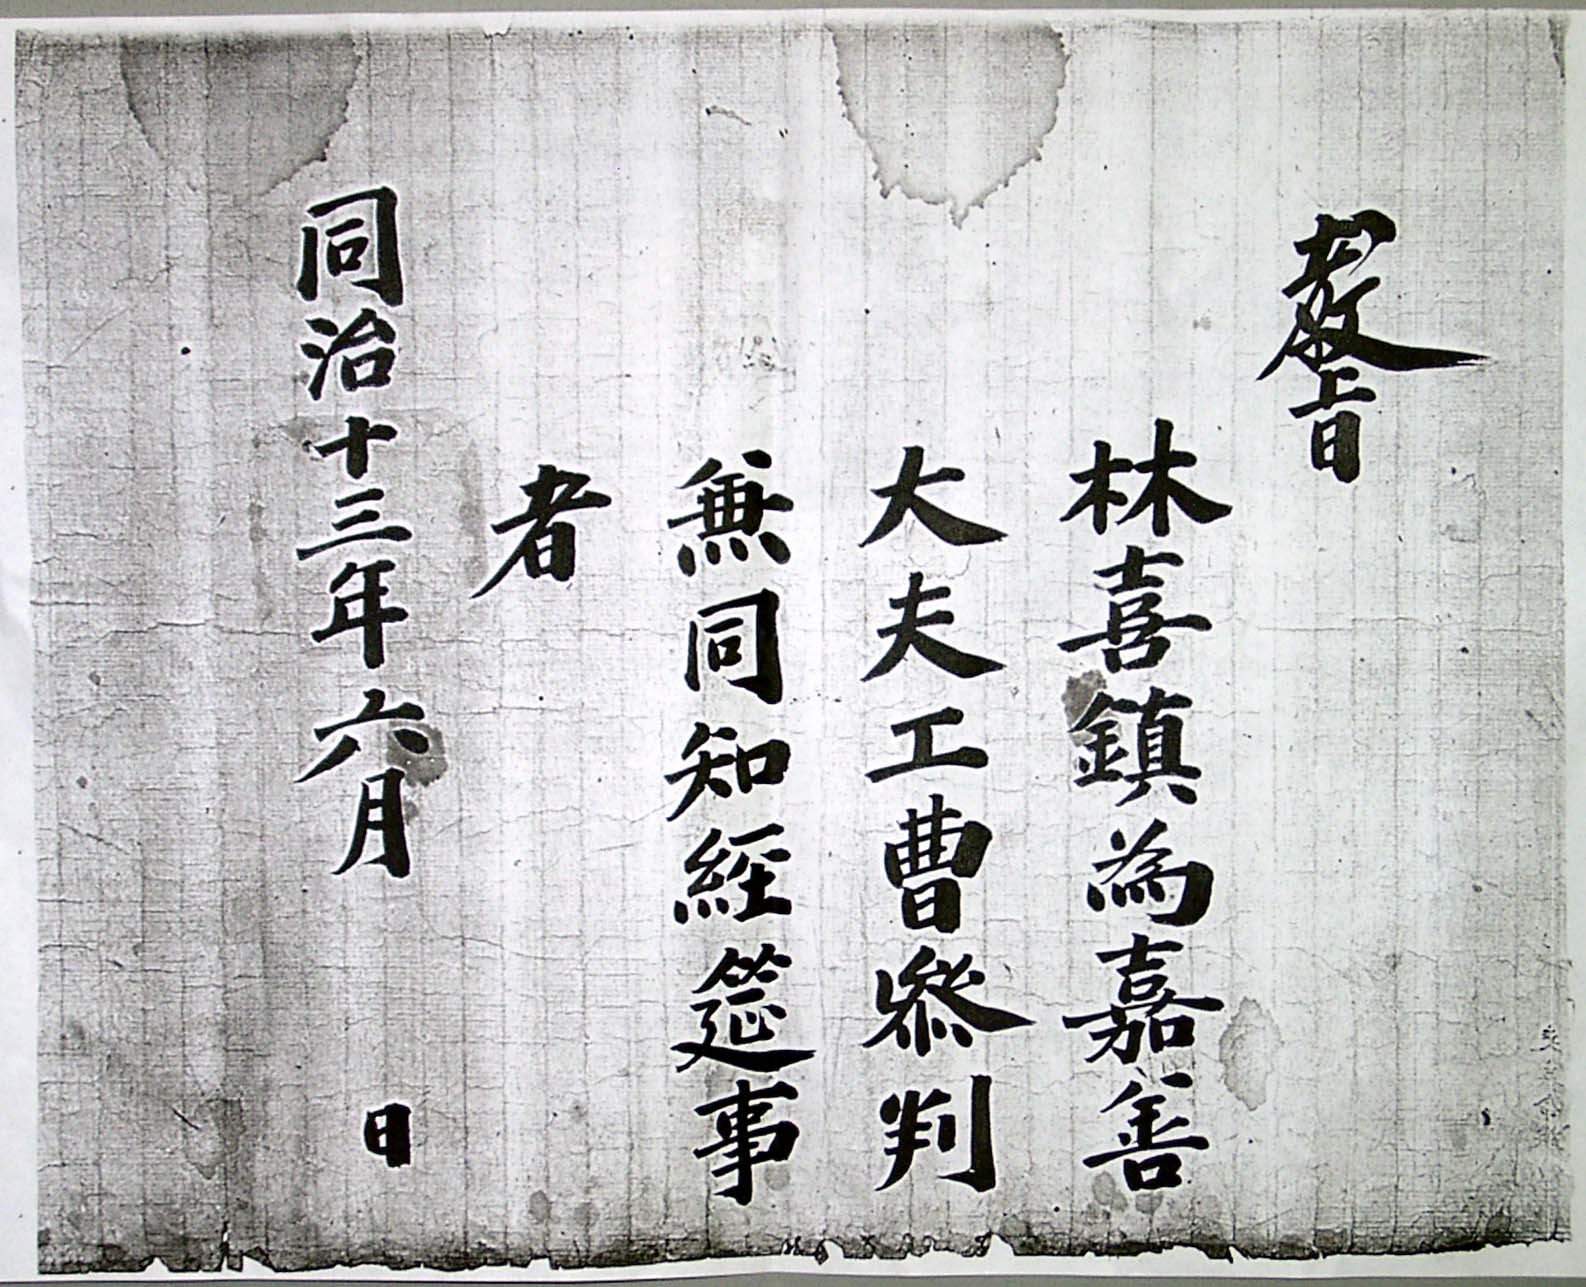 教旨
林喜鎮為嘉善
大夫工曹叅判
兼同知經筵事
者
同治十三年六月 日